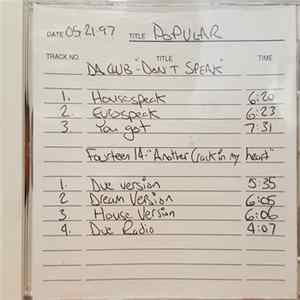 DATE 05-21-97 TITLE POPULAR
TRACK NO. TITLE TIME
DA CLUB - "DON'T SPEAK"
1. Housespeak 6:20
2. Eurospeak 6:23
3. You got 7:31
Fourteen 14 - "Another Crack in my heart"
1. Due version 5:35
2 Dream Version 6:05
3 House Version 6:06
4. Due Radio 4:07